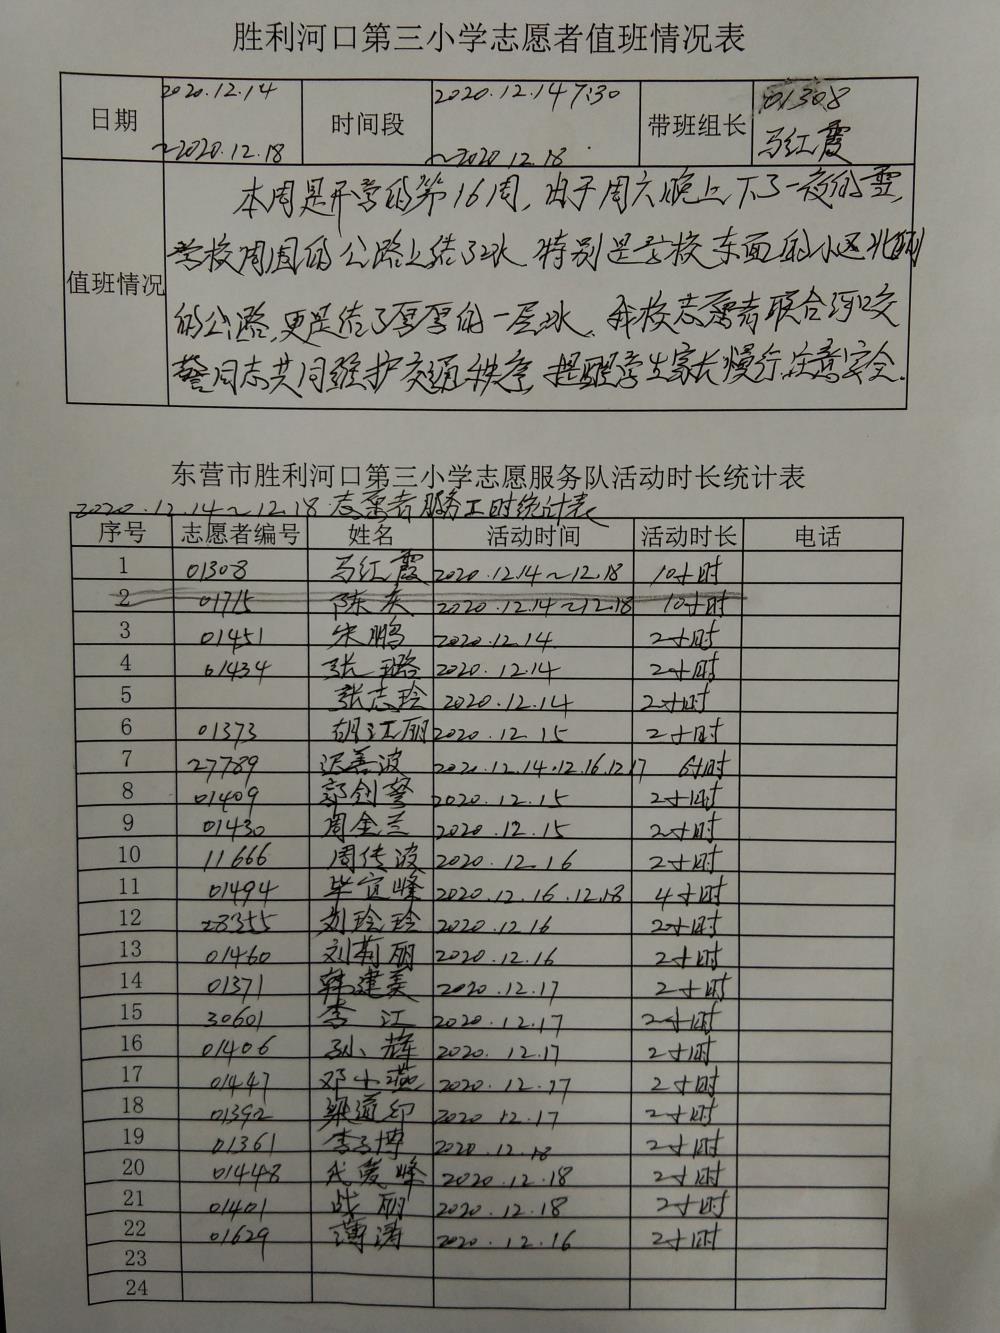 胜利河口第三小学志愿者值班情况表
日期 2020.12.14 ~2020.12.18 时间段 2020.12.14 7:30 ~2020.12.18 带班组长 01308 马红霞
值班情况
本周是开学的第16周,由于周六晚上下了一夜的雪,
学校周围的公路上结了冰 特别是学校东面的小区北侧
的公路,更是结了厚厚的一层冰、我校志愿者联合河口交
警同志共同维护交通秩序,提醒学生家长慢行,注意安全.
东营市胜利河口第三小学志愿服务队活动时长统计表
2020.12.14~12.18 志愿者服务工时统计表
序号 志愿者编号 姓名 活动时间 活动时长 电话
1 01308 马红霞 2020.12.14~12.18 10小时
2 01715 陈 2020.12.14~12.18 10小时
3 01451 宋鹏 2020.12.14 2小时
4 01434 张璐 2020.12.14 2小时
5 张志玲 2020.12.14 2小时
6 01373 胡江丽 2020.12.15 2小时
7 27789 迟善波 2020.12.14.12.16.12.17 6小时
8 01409 郭剑 2020.12.15 2小时
9 01430 周金兰 2020.12.15 2小时
10 11666 周传波 2020.12.16 2小时
11 01494 毕宜峰 2020.12.16.12.18 4小时
12 28355 刘玲玲 2020.12.16 2小时
13 01460 刘莉丽 2020.12.16 2小时
14 01371 韩建美 2020.12.17 2小时
15 30601 李江 2020.12.17 2小时
16 01406 孙辉 2020.12.17 2小时
17 01447 邓小燕 2020.12.17 2小时
18 01392 梁道印 2020.12.17 2小时
19 01361 李博 2020.12.18 2小时
20 01448 代爱峰 2020.12.18 2小时
21 01401 战丽 2020.12.18 2小时
22 01629 薄涛 2020.12.16 2小时
23
24